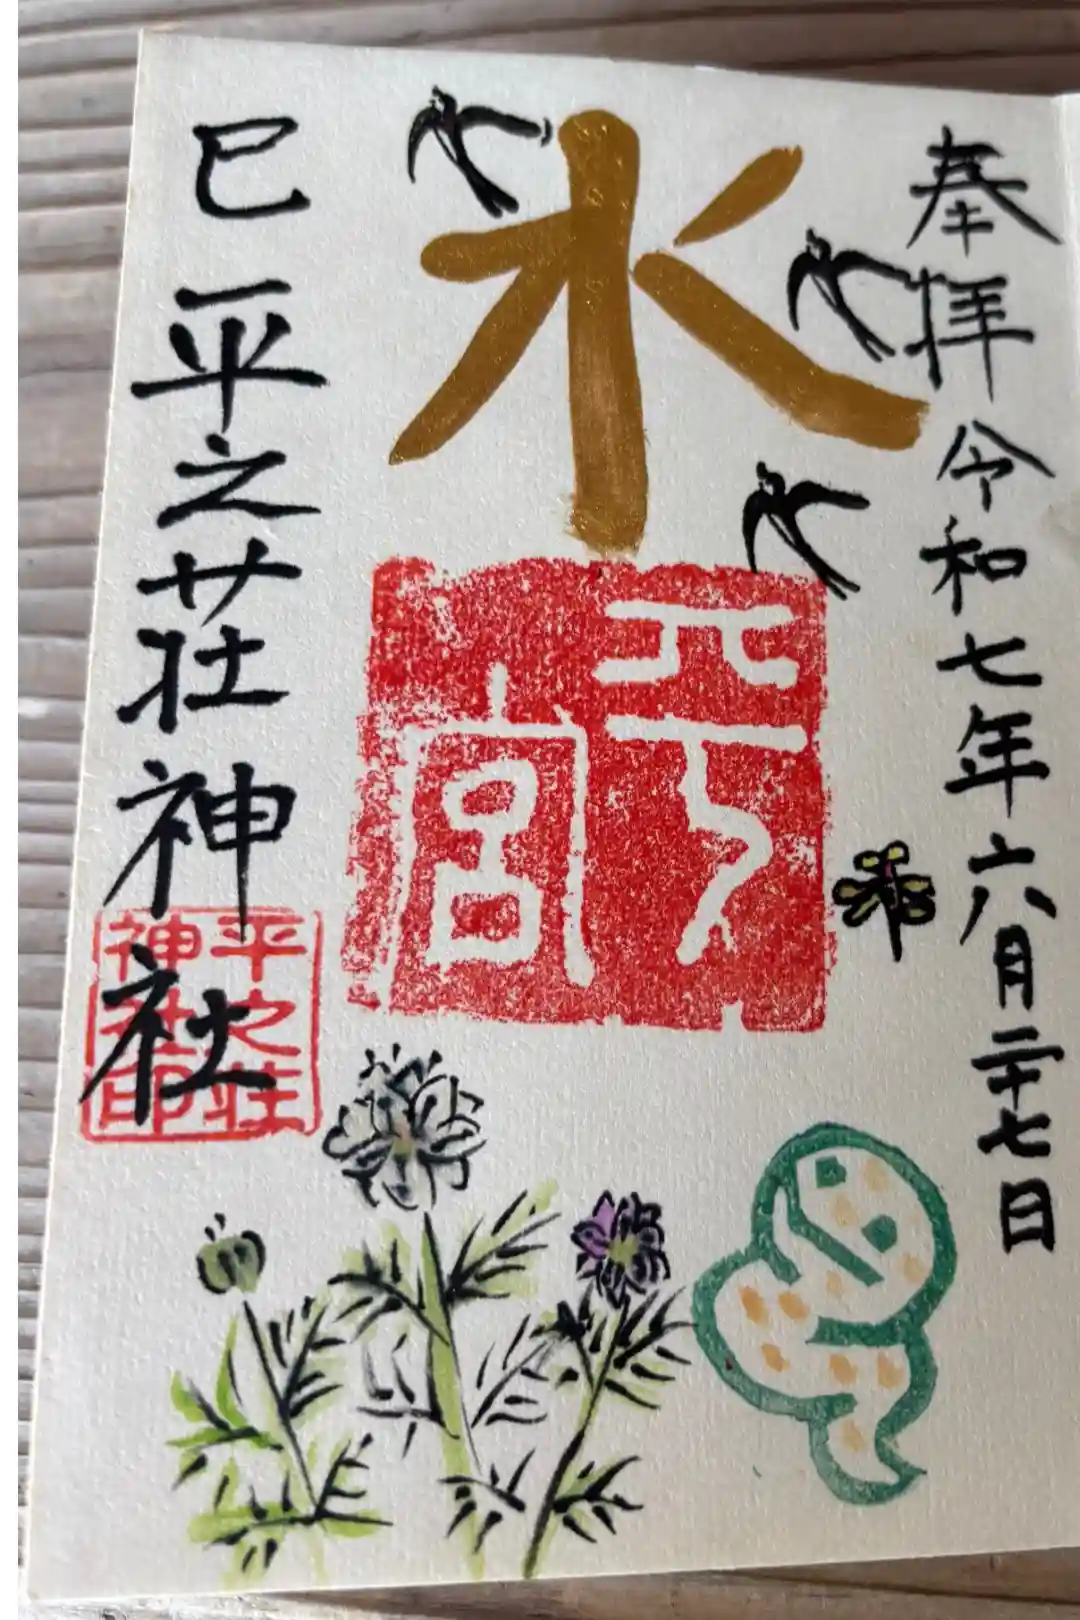 奉拝 令和七年六月二十七日
水
巳 平之荘神社
平之荘
神社印